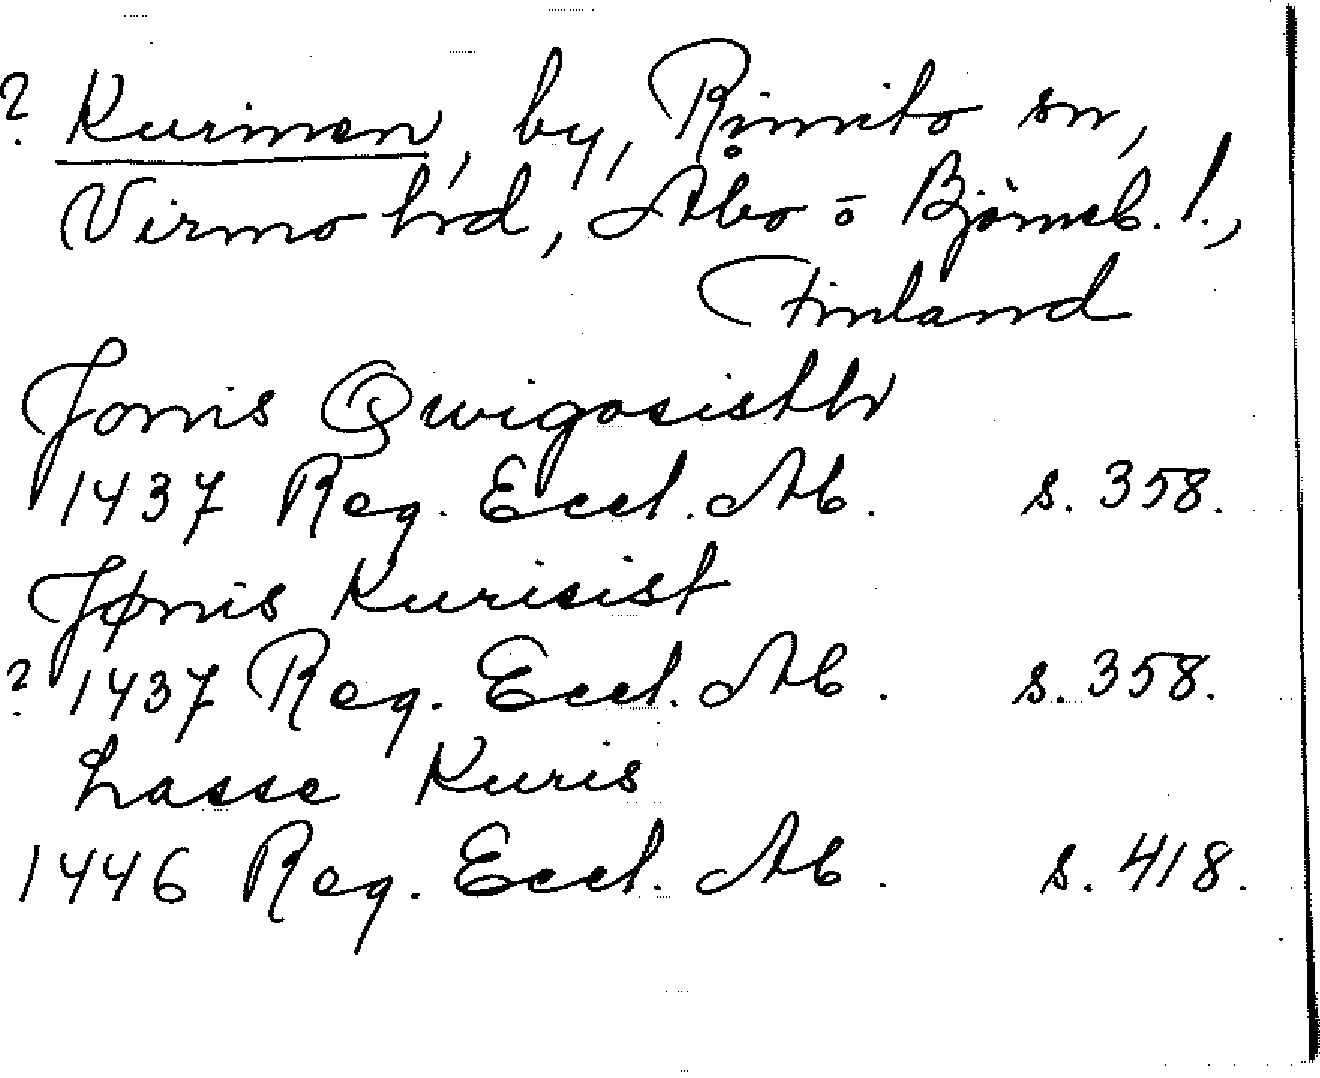 ? Kurimen, by, Rimito sn,
Virmo hrd, Åbo o Björneb. l.,
Finland
Jonis Qwigosisthr
1437 Reg. Eccl. Ab. s. 358.
Jønis Kurisist
? 1437 Reg. Eccl. Ab. s. 358.
Lasse Kuris
1446 Reg. Eccl. Ab. s. 418.